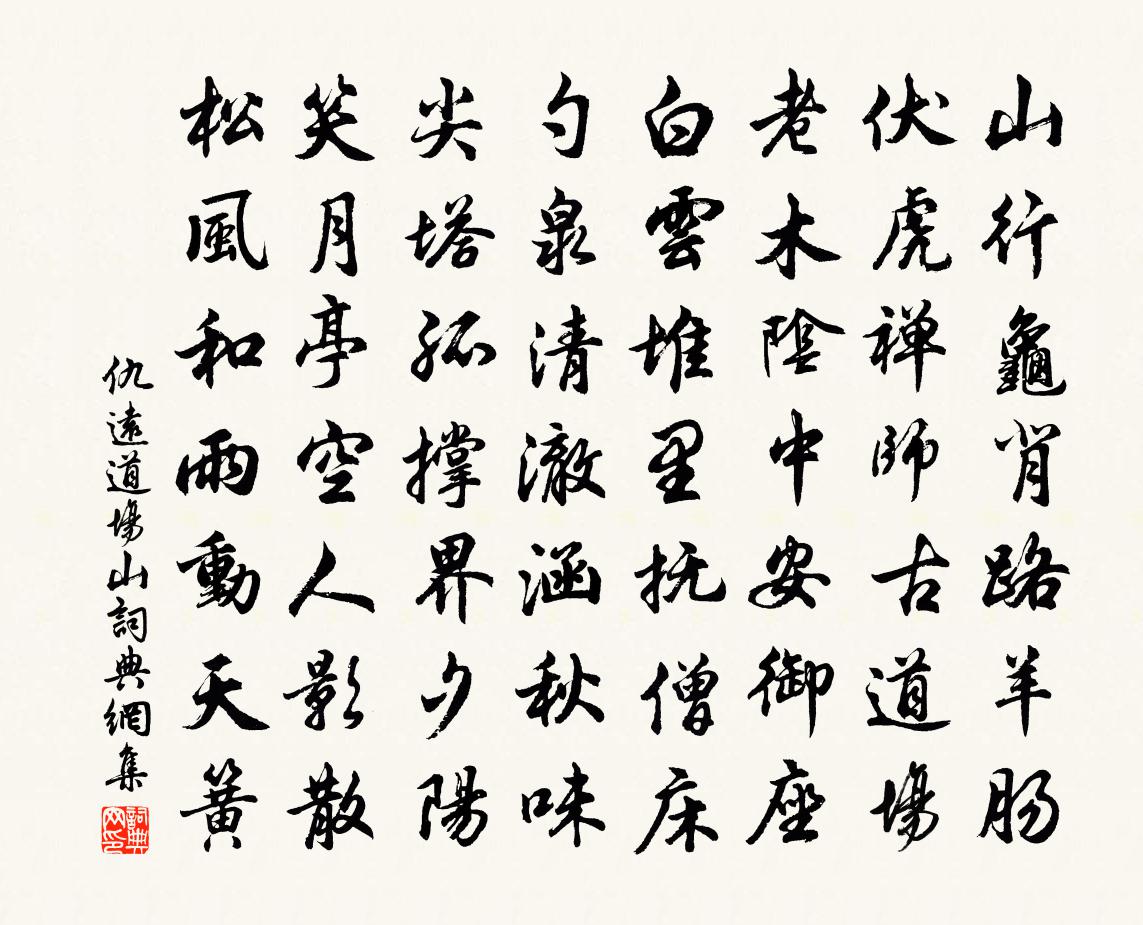 山行龜背路羊肠
伏虎禅師古道場
老木陰中安御座
白雲堆里抚僧床
勺泉清澈涵秋味
尖塔孤撑界夕陽
笑月亭空人影散
松風和雨動天簧
仇遠道場山詞典網集
詞典网